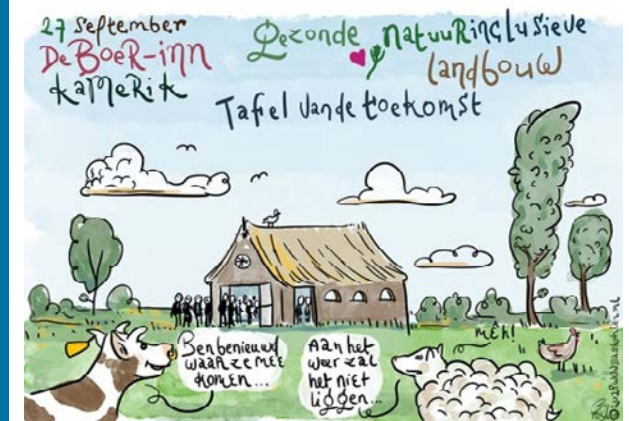 27 September
De BoeR-inn
KaMeRik
Gezonde natuuRinclusieve
landbouw
Tafel van de toekomst
Ben benieuwd
waar ze mee
komen...
Aan het
weer zal
het niet
liggen...
MÈH!